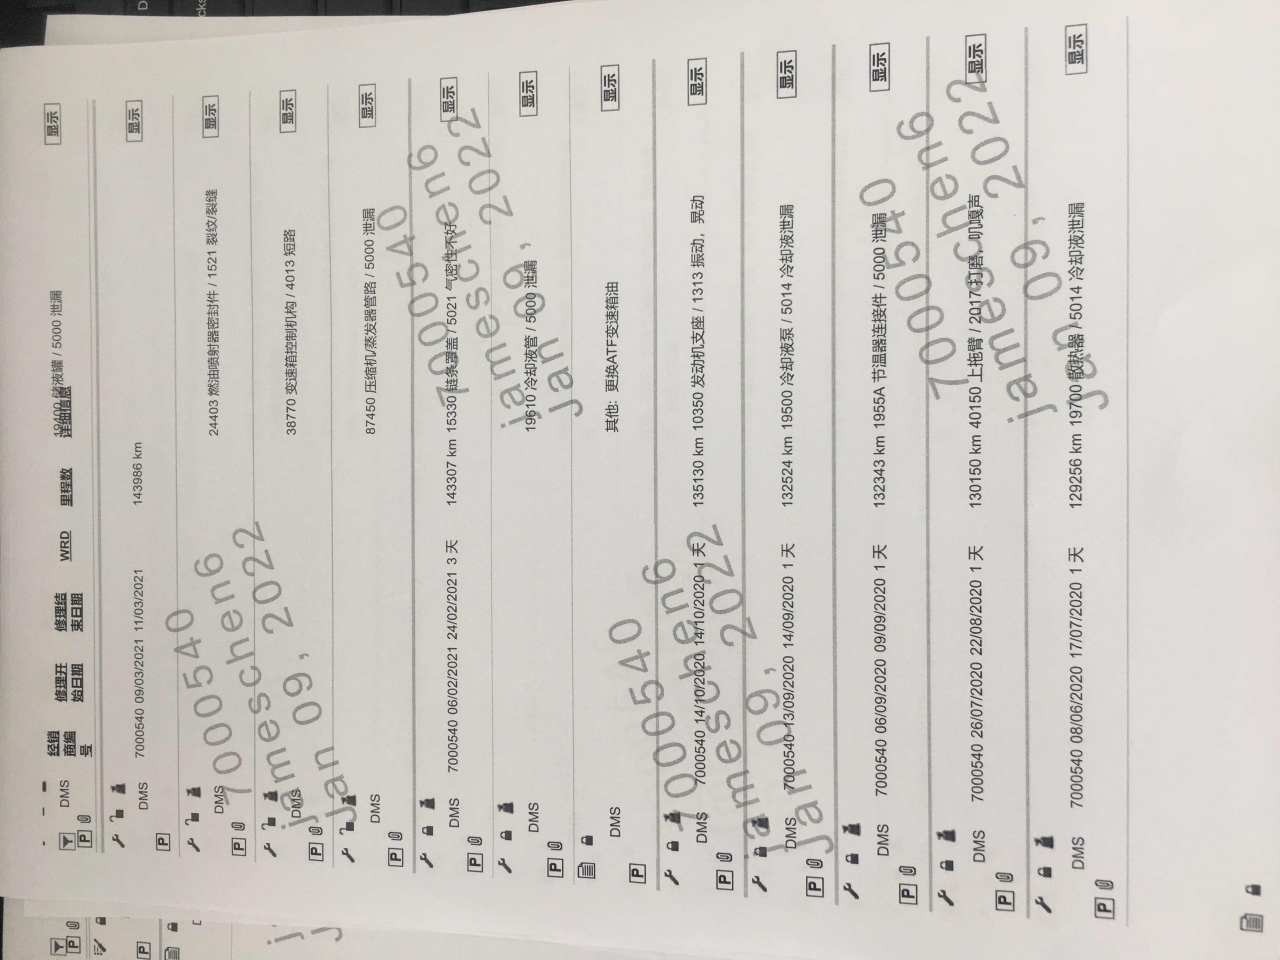 19400 储液罐 / 5000 泄漏
显示
DMS
经销商编号
修理开始日期
修理结束日期
WRD
里程数
详细信息
P
DMS 7000540 09/03/2021 11/03/2021 143986 km
显示
P
DMS 24403 燃油喷射器密封件 / 1521 裂纹/裂缝
显示
P
DMS 38770 变速箱控制机构 / 4013 短路
显示
P
DMS 87450 压缩机/蒸发器管路 / 5000 泄漏
显示
P
DMS 7000540 06/02/2021 24/02/2021 3 天 143307 km 15330 链条罩盖 / 5021 气密性不好
显示
P
DMS 19610 冷却液管 / 5000 泄漏
显示
P
DMS 其他: 更换ATF变速箱油
显示
P
DMS 7000540 14/10/2020 14/10/2020 1 天 135130 km 10350 发动机支座 / 1313 振动, 晃动
显示
P
DMS 7000540 13/09/2020 14/09/2020 1 天 132524 km 19500 冷却液泵 / 5014 冷却液泄漏
显示
P
DMS 7000540 06/09/2020 09/09/2020 1 天 132343 km 1955A 节温器连接件 / 5000 泄漏
显示
P
DMS 7000540 26/07/2020 22/08/2020 1 天 130150 km 40150 上拖臂 / 2017 打磨, 叽嘎声
显示
P
DMS 7000540 08/06/2020 17/07/2020 1 天 129256 km 19700 散热器 / 5014 冷却液泄漏
显示
P
7000540
jameschen6
jan 09, 2022
7000540
jameschen6
jan 09, 2022
7000540
jameschen6
jan 09, 2022
7000540
jameschen6
jan 09, 2022